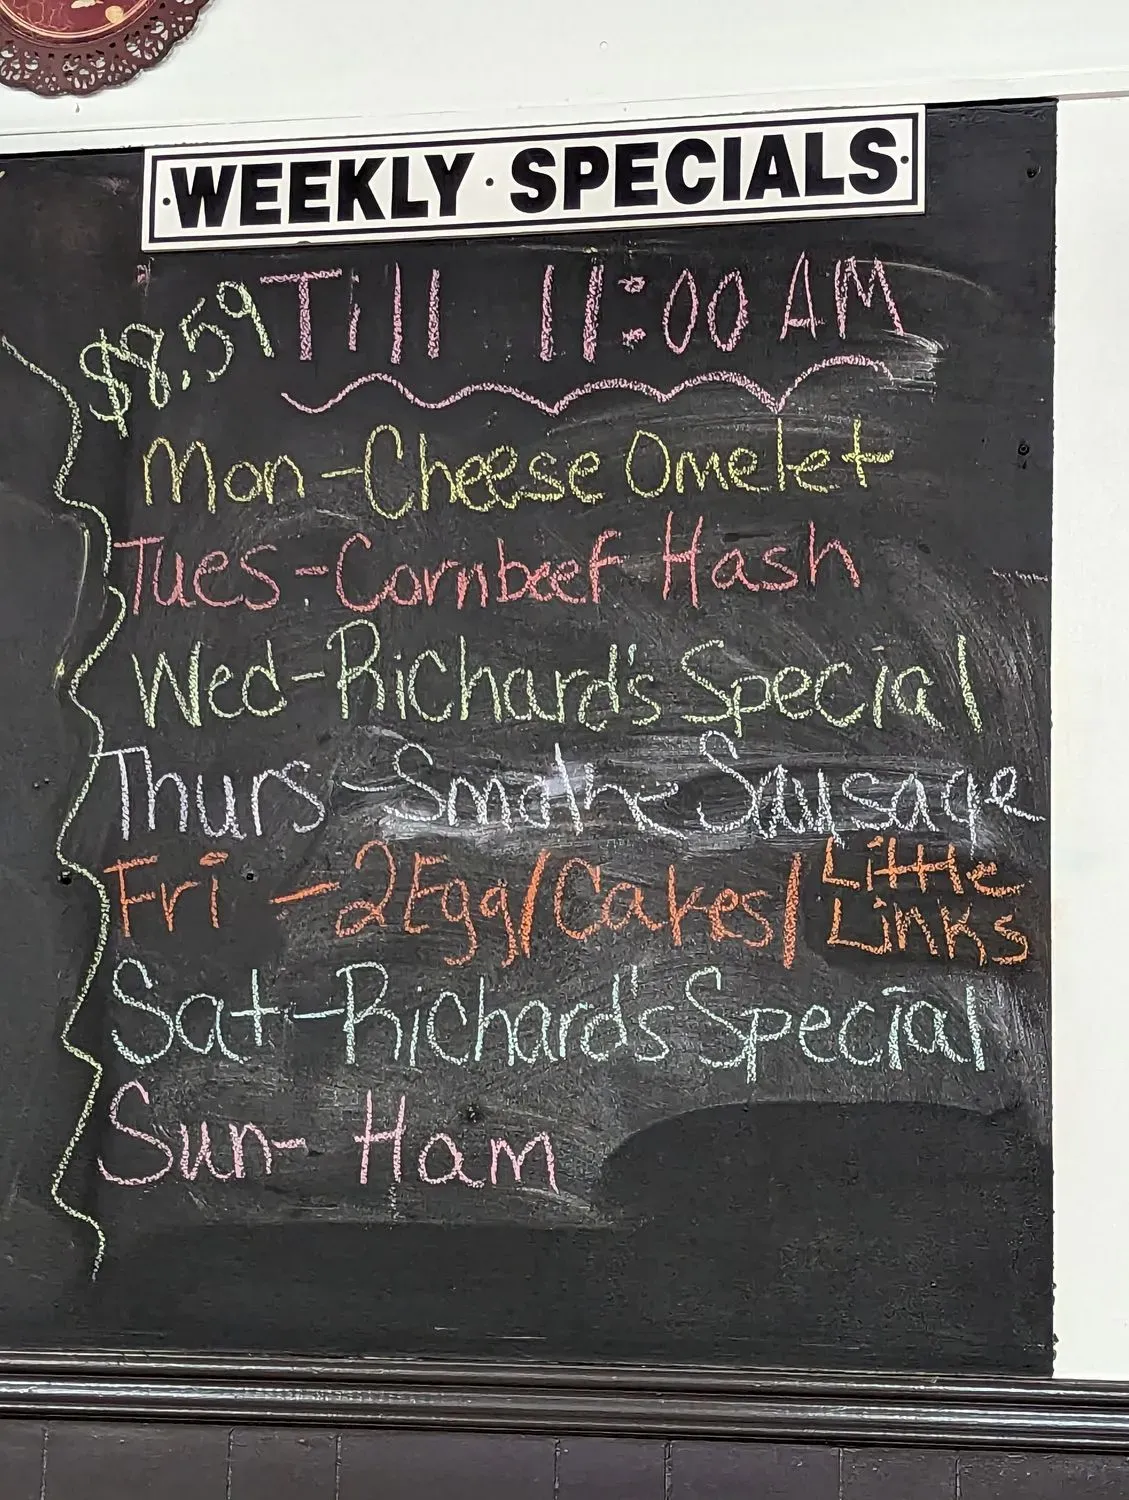 WEEKLY SPECIALS
$8.59 Till 11:00 AM
Mon-Cheese Omelet
Tues-Cornbeef Hash
Wed-Richard's Special
Thurs-Smothe Sausage
Fri-2Egg/Cakes/Little Links
Sat-Richard's Special
Sun-Ham